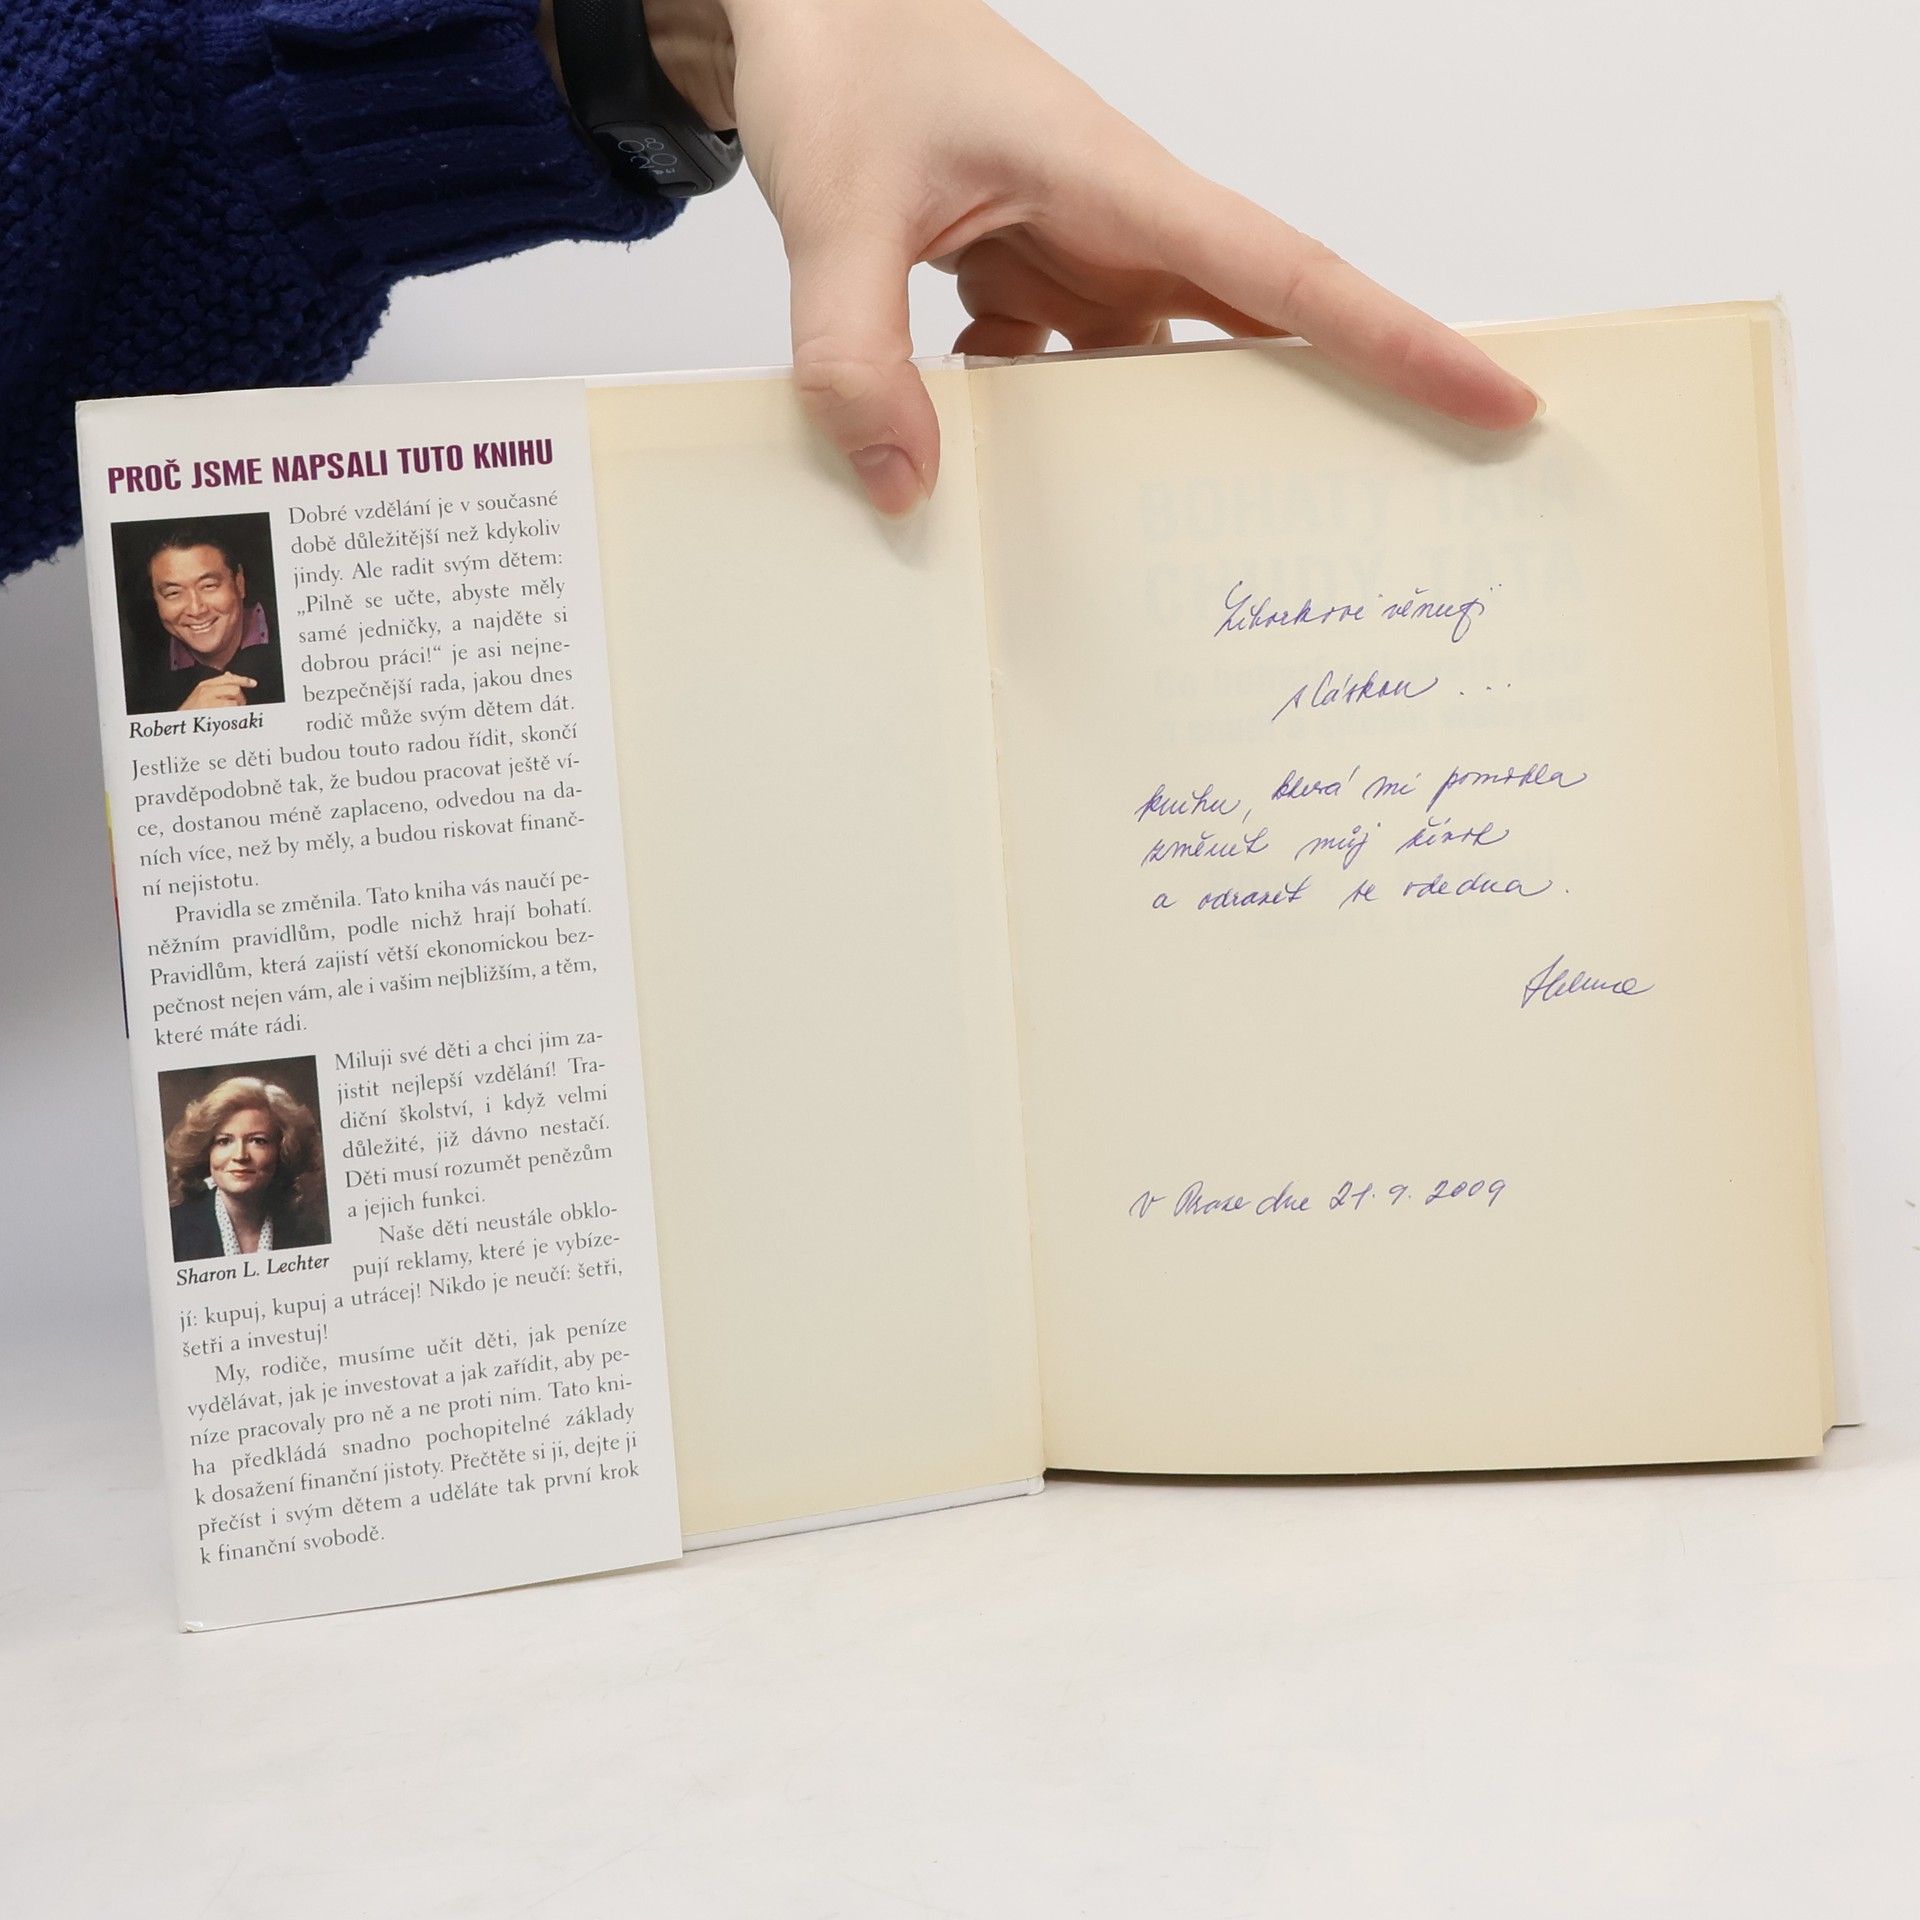 PROČ JSME NAPSALI TUTO KNIHU
Dobré vzdělání je v současné
době důležitější než kdykoliv
jindy. Ale radit svým dětem:
„Pilně se učte, abyste měly
samé jedničky, a najděte si
dobrou práci!“ je asi nejne-
bezpečnější rada, jakou dnes
rodič může svým dětem dát.
Robert Kiyosaki
Jestliže se děti budou touto radou řídit, skončí
pravděpodobně tak, že budou pracovat ještě ví-
ce, dostanou méně zaplaceno, odvedou na da-
ních více, než by měly, a budou riskovat finanč-
ní nejistotu.
Pravidla se změnila. Tato kniha vás naučí pe-
něžním pravidlům, podle nichž hrají bohatí.
Pravidlům, která zajistí větší ekonomickou bez-
pečnost nejen vám, ale i vašim nejbližším, a těm,
které máte rádi.
Miluji své děti a chci jim za-
jistit nejlepší vzdělání! Tra-
diční školství, i když velmi
důležité, již dávno nestačí.
Děti musí rozumět penězům
a jejich funkci.
Naše děti neustále obklo-
pují reklamy, které je vybíze-
Sharon L. Lechter
jí: kupuj, kupuj a utrácej! Nikdo je neučí: šetři,
šetři a investuj!
My, rodiče, musíme učit děti, jak peníze
vydělávat, jak je investovat a jak zařídit, aby pe-
níze pracovaly pro ně a ne proti nim. Tato kni-
ha předkládá snadno pochopitelné základy
k dosažení finanční jistoty. Přečtěte si ji, dejte ji
přečíst i svým dětem a uděláte tak první krok
k finanční svobodě.
Liborkovi věnuji
s láskou ...
knihu, která mi pomohla
změnit můj život
a odrazit se ode dna.
Helena
V Praze dne 21. 9. 2009